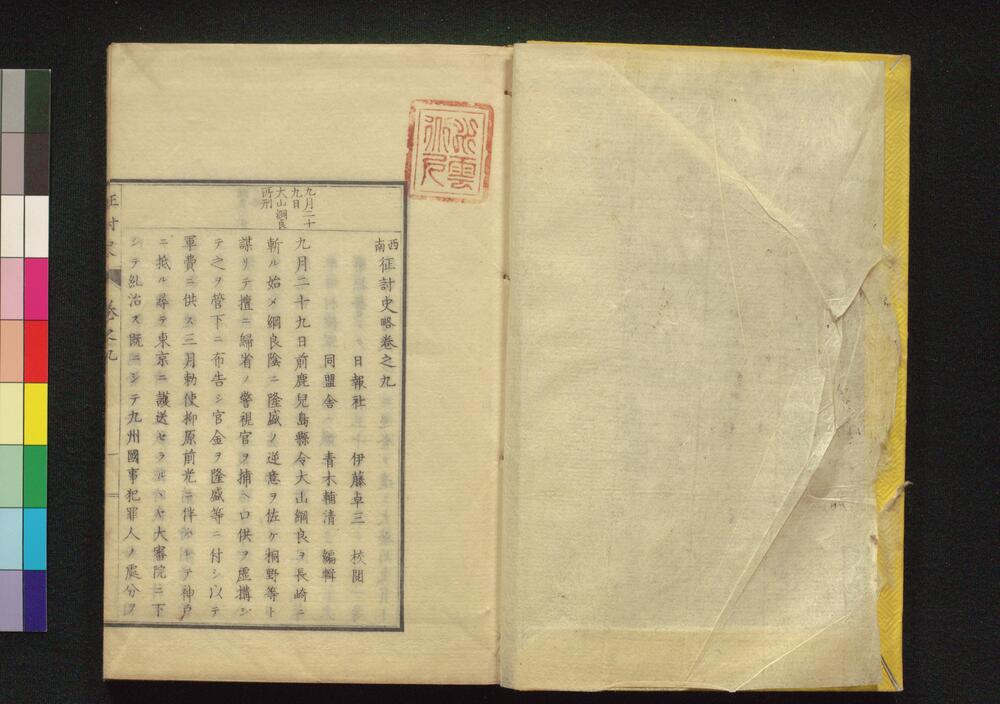 西南征討史略卷之九
日報社 伊藤卓三 校閲
同盟舍 青木輔清 編輯
九月二十
九日
大山綱良
所刑
九月二十九日前鹿兒島縣令大山綱良ヲ長崎ニ
斬ル始メ綱良陰ニ隆盛ノ逆意ヲ佐ケ桐野等ト
謀リテ擅ニ歸省ノ警視官ヲ捕ヘ口供ヲ虛搆シ
テ之ヲ管下ニ布告シ官金ヲ隆盛等ニ付シ以テ
軍費ニ供ス三月勅使柳原前光ニ伴ハレテ神戸
ニ抵ル尋テ東京ニ護送セラル大審院ニ下
シテ糺治ス既ニシテ九州國事犯罪人ノ處分ヲ
卷之九